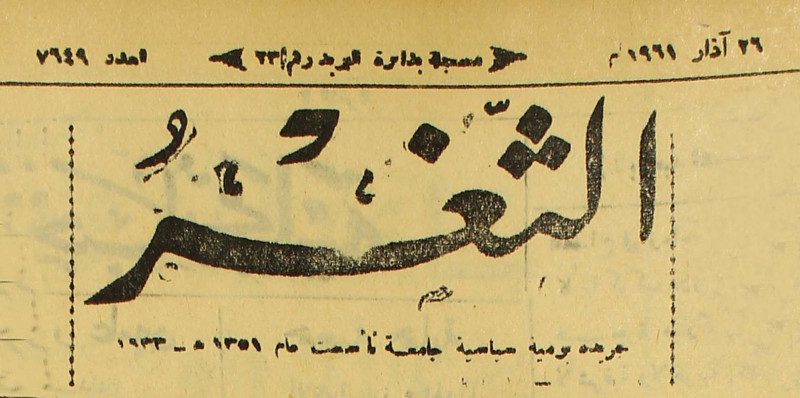 ٢٦ آذار ١٩٦١ م مسجلة بدائرة البريد رقم ٢٣ العدد ٧٦٤٩
الثَّغْرُ
جريده يومية سياسية جامعة تأسست عام ١٣٥١ ه – ١٩٣٣